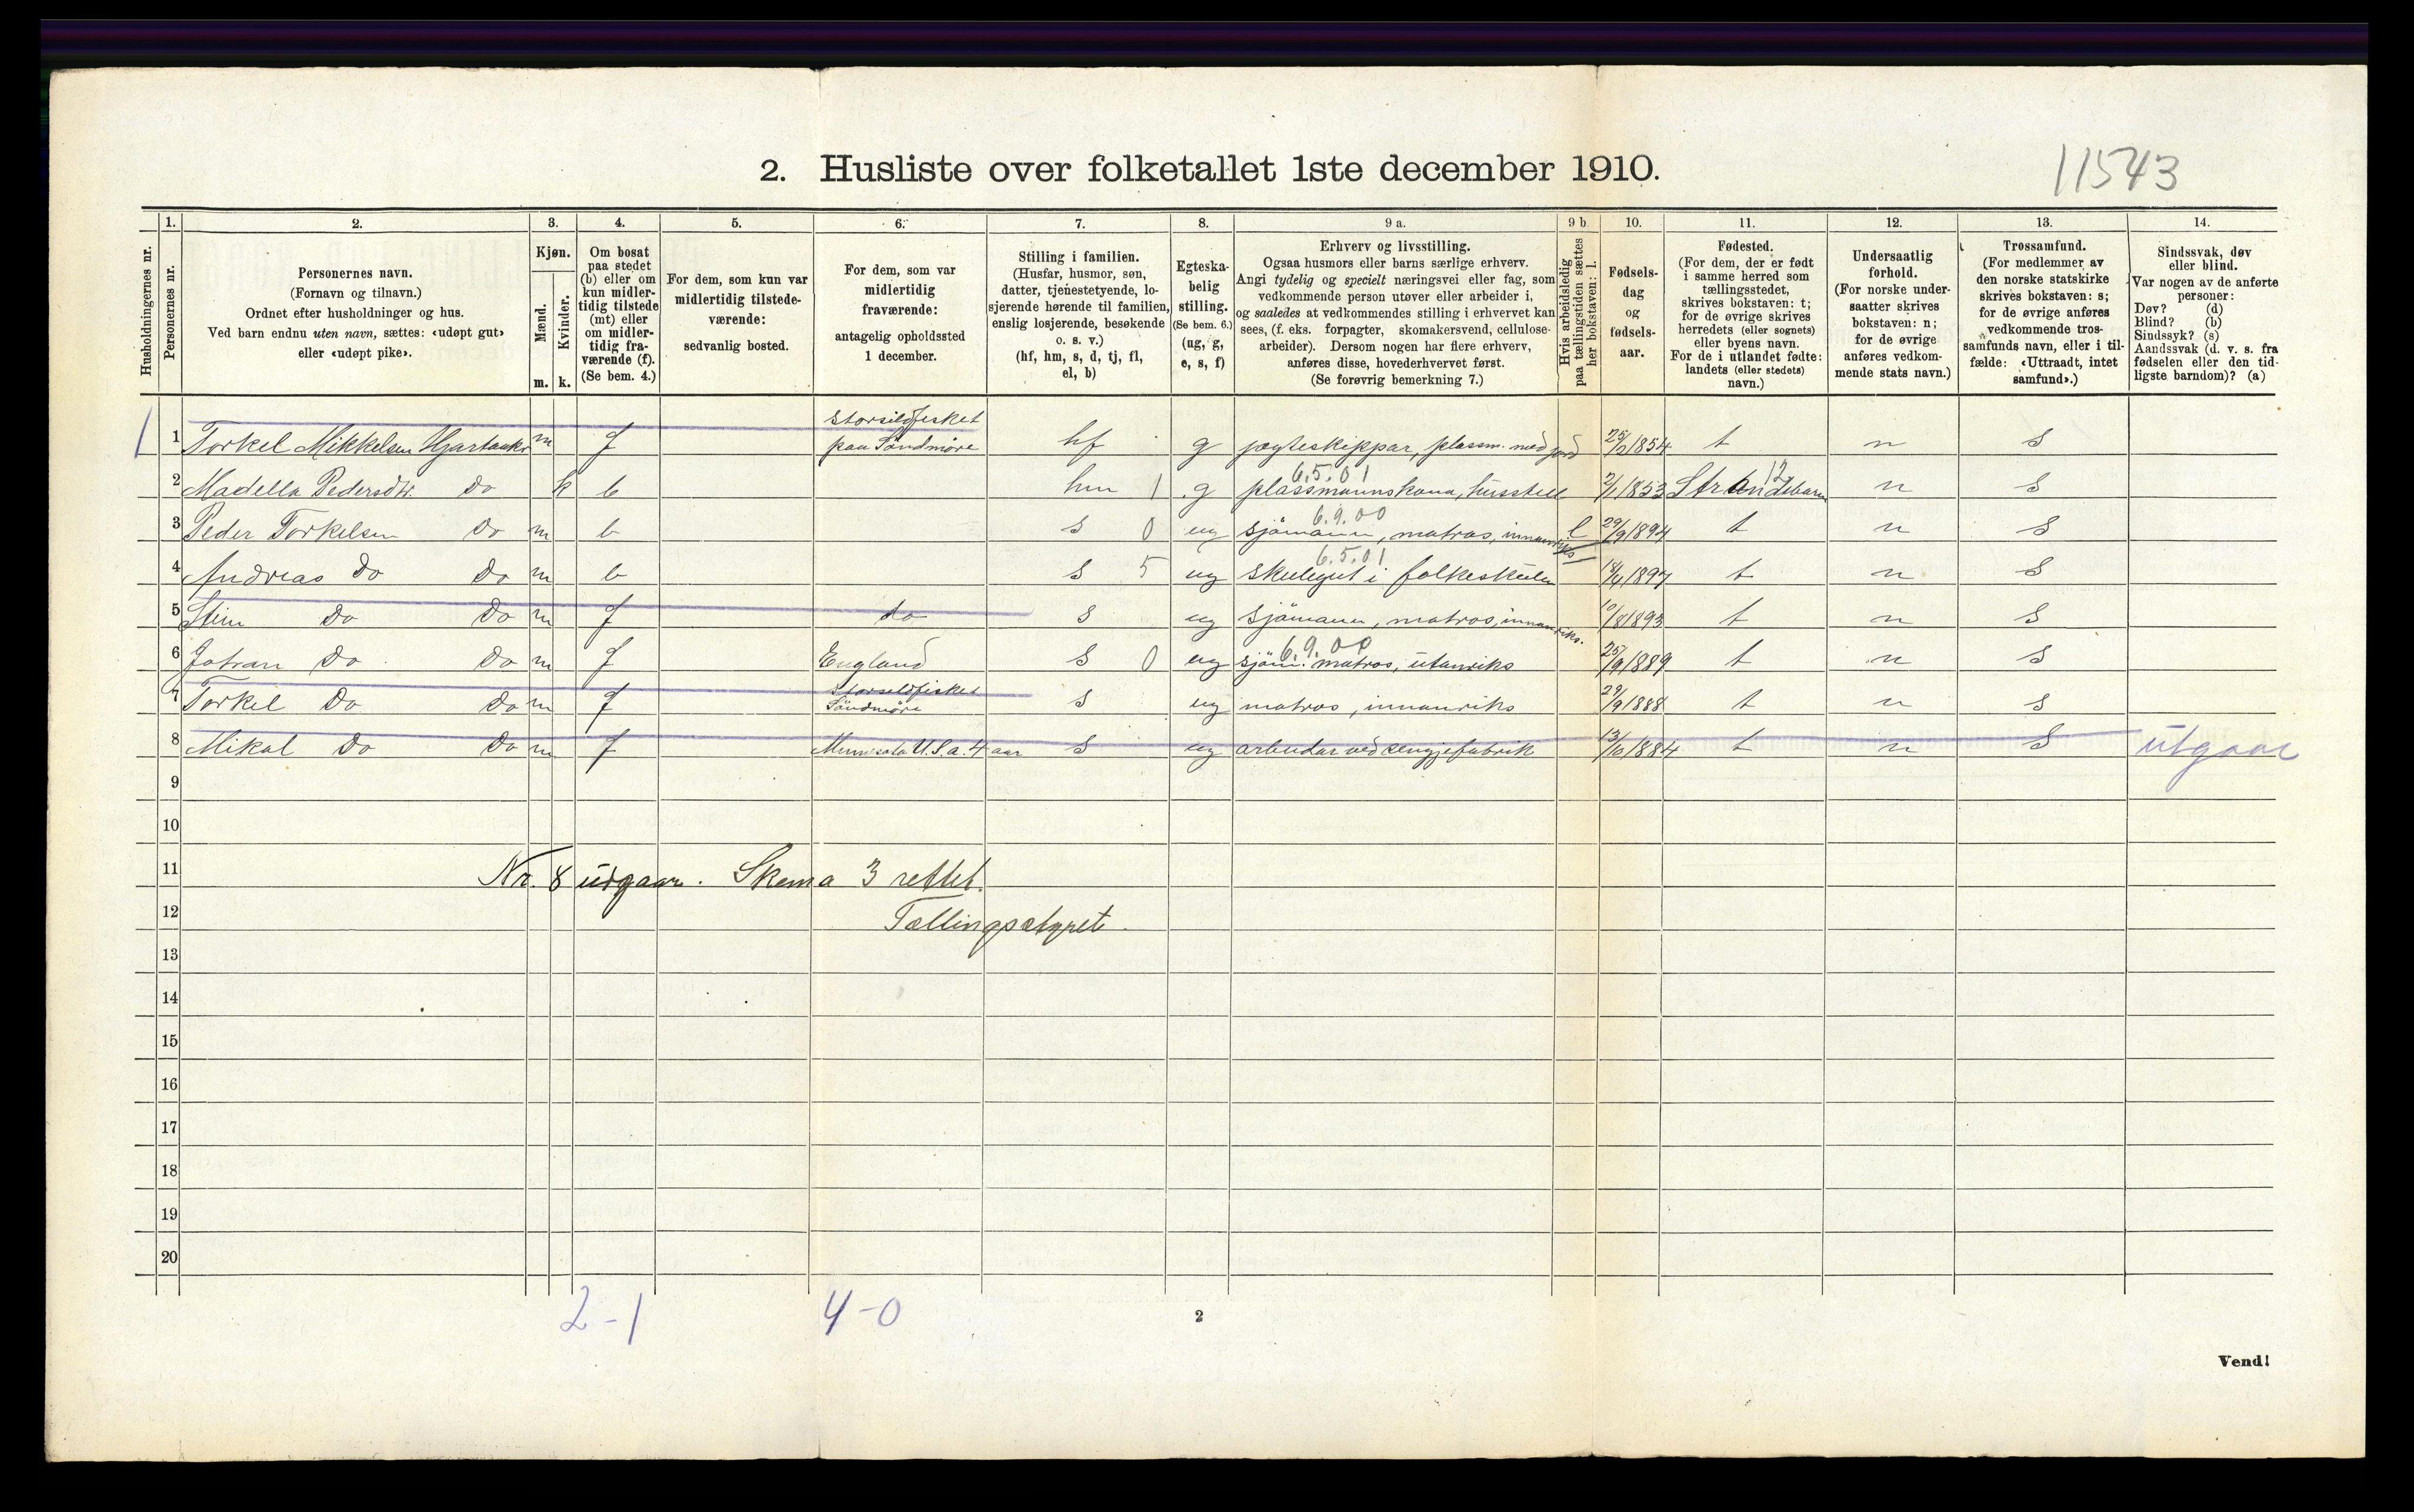 2. Husliste over folketallet 1ste december 1910.
11543
1. 2. 3. 4. 5. 6. 7. 8. 9 a. 9 b. 10. 11. 12. 13. 14.
Husholdningernes nr.
Personernes nr.
Personernes navn.
(Fornavn og tilnavn.)
Ordnet efter husholdninger og hus.
Ved barn endnu uten navn, sættes: «udøpt gut»
eller «udøpt pike».
Kjøn.
Mænd.
Kvinder.
m. k.
Om bosat
paa stedet
(b) eller om
kun midler-
tidig tilstede
(mt) eller
om midler-
tidig fra-
værende (f).
(Se bem. 4.)
For dem, som kun var
midlertidig tilstede-
værende:
sedvanlig bosted.
For dem, som var
midlertidig
fraværende:
antagelig opholdssted
1 december.
Stilling i familien.
(Husfar, husmor, søn,
datter, tjenestetyende, lo-
sjerende hørende til familien,
enslig losjerende, besøkende
o. s. v.)
(hf, hm, s, d, tj, fl,
el, b)
Egteska-
belig
stilling.
(Se bem. 6.)
(ug, g,
e, s, f)
Erhverv og livsstilling.
Ogsaa husmors eller barns særlige erhverv.
Angi tydelig og specielt næringsvei eller fag, som
vedkommende person utøver eller arbeider i,
og saaledes at vedkommendes stilling i erhvervet kan
sees, (f. eks. forpagter, skomakersvend, cellulose-
arbeider). Dersom nogen har flere erhverv,
anføres disse, hovederhvervet først.
(Se forøvrig bemerkning 7.)
Hvis arbeidsledig
paa tællingstiden sættes
her bokstaven: l.
Fødsels-
dag
og
fødsels-
aar.
Fødested.
(For dem, der er født
i samme herred som
tællingsstedet,
skrives bokstaven: t;
for de øvrige skrives
herredets (eller sognets)
eller byens navn.
For de i utlandet fødte:
landets (eller stedets)
navn.)
Undersaatlig
forhold.
(For norske under-
saatter skrives
bokstaven: n;
for de øvrige
anføres vedkom-
mende stats navn.)
Trossamfund.
(For medlemmer av
den norske statskirke
skrives bokstaven: s;
for de øvrige anføres
vedkommende tros-
samfunds navn, eller i til-
fælde: «Uttraadt, intet
samfund».)
Sindssvak, døv
eller blind.
Var nogen av de anførte
personer:
Døv? (d)
Blind? (b)
Sindssyk? (s)
Aandssvak (d. v. s. fra
fødselen eller den tid-
ligste barndom)? (a)
storsildfisket
1 1 Torkel Mikkelsen m f paa Söndmöre hf g jægteskippar, plassm. med jord 25/2 1854 t n S
6.5.01 12
2 Madella Pedersdtr. do k b hm 1 g plassmannskona, husstell 2/1 1853 Strandebarm n S
6.9.00
3 Peder Torkelsen do m b s 0 ug sjömann, matros, innanriks l 29/9 1894 t n S
6.5.01
4 Andreas do do m b s 5 ug skulegut i folkeskulen 1897 t n S
5 do do m f do s ug sjömann, matros, innanriks. 10/8 1893 t n S
6.9.00
6 do do m f England s 0 ug sjöm. matros, utanriks 25/9 1889 t n S
storsildfisket
7 Torkel do do m f Söndmöre s ug matros, innanriks 29/9 1888 t n S
8 Mikal do do m f U.S.a. 4 aar s ug arbeidar ved 13/10 1884 t n S utgaar
9
10
11 Nr. 8 udgaar. Skema 3 rettet.
12 Tællingsstyret.
13
14
15
16
17
18
19
20
2-1 4-0
2
Vend!